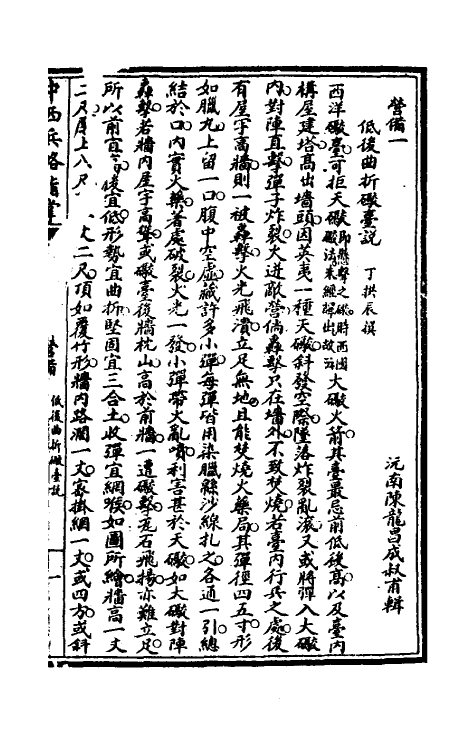 營備一
沅南陳龍昌成叔甫輯
低後曲折礮臺說 丁拱辰撰
西洋礮臺可拒天礮即懸擊之礮時西國礮法未經譯出故云大礮火箭其臺最忌前低後高以及臺內
構屋建塔高出墻頭因英夷一種天礮斜發空際墜落炸裂亂滾又或將彈入大礮
內對陣直擊彈子炸裂火迸敵營倘轟擊只在墻外不致焚燒若臺內行兵之處後
有屋宇高牆則一被轟擊火光飛濆立足無地且能焚燒火藥局其彈徑四五寸形
如臘丸上留一口腹中空虛藏許多小彈每彈皆用染臘緜沙線扎之各通一引總
結於口內實火藥著處破裂火光一發小彈帶火亂噴利害甚於天礮如大礮對陣
轟擊若牆內屋宇高聳或礮臺後牆枕山高於前牆一遭礮擊瓦石飛揚亦難立足
所以前宜高後宜低形勢宜曲折堅固宜三合土收彈宜網喉如圖所繪牆高一丈
二尺厚上八尺 丈二尺頂如覆竹形牆內路濶一丈家掛網一丈或四方或斜
中西兵略指掌
營備
低後曲折礮臺說
一